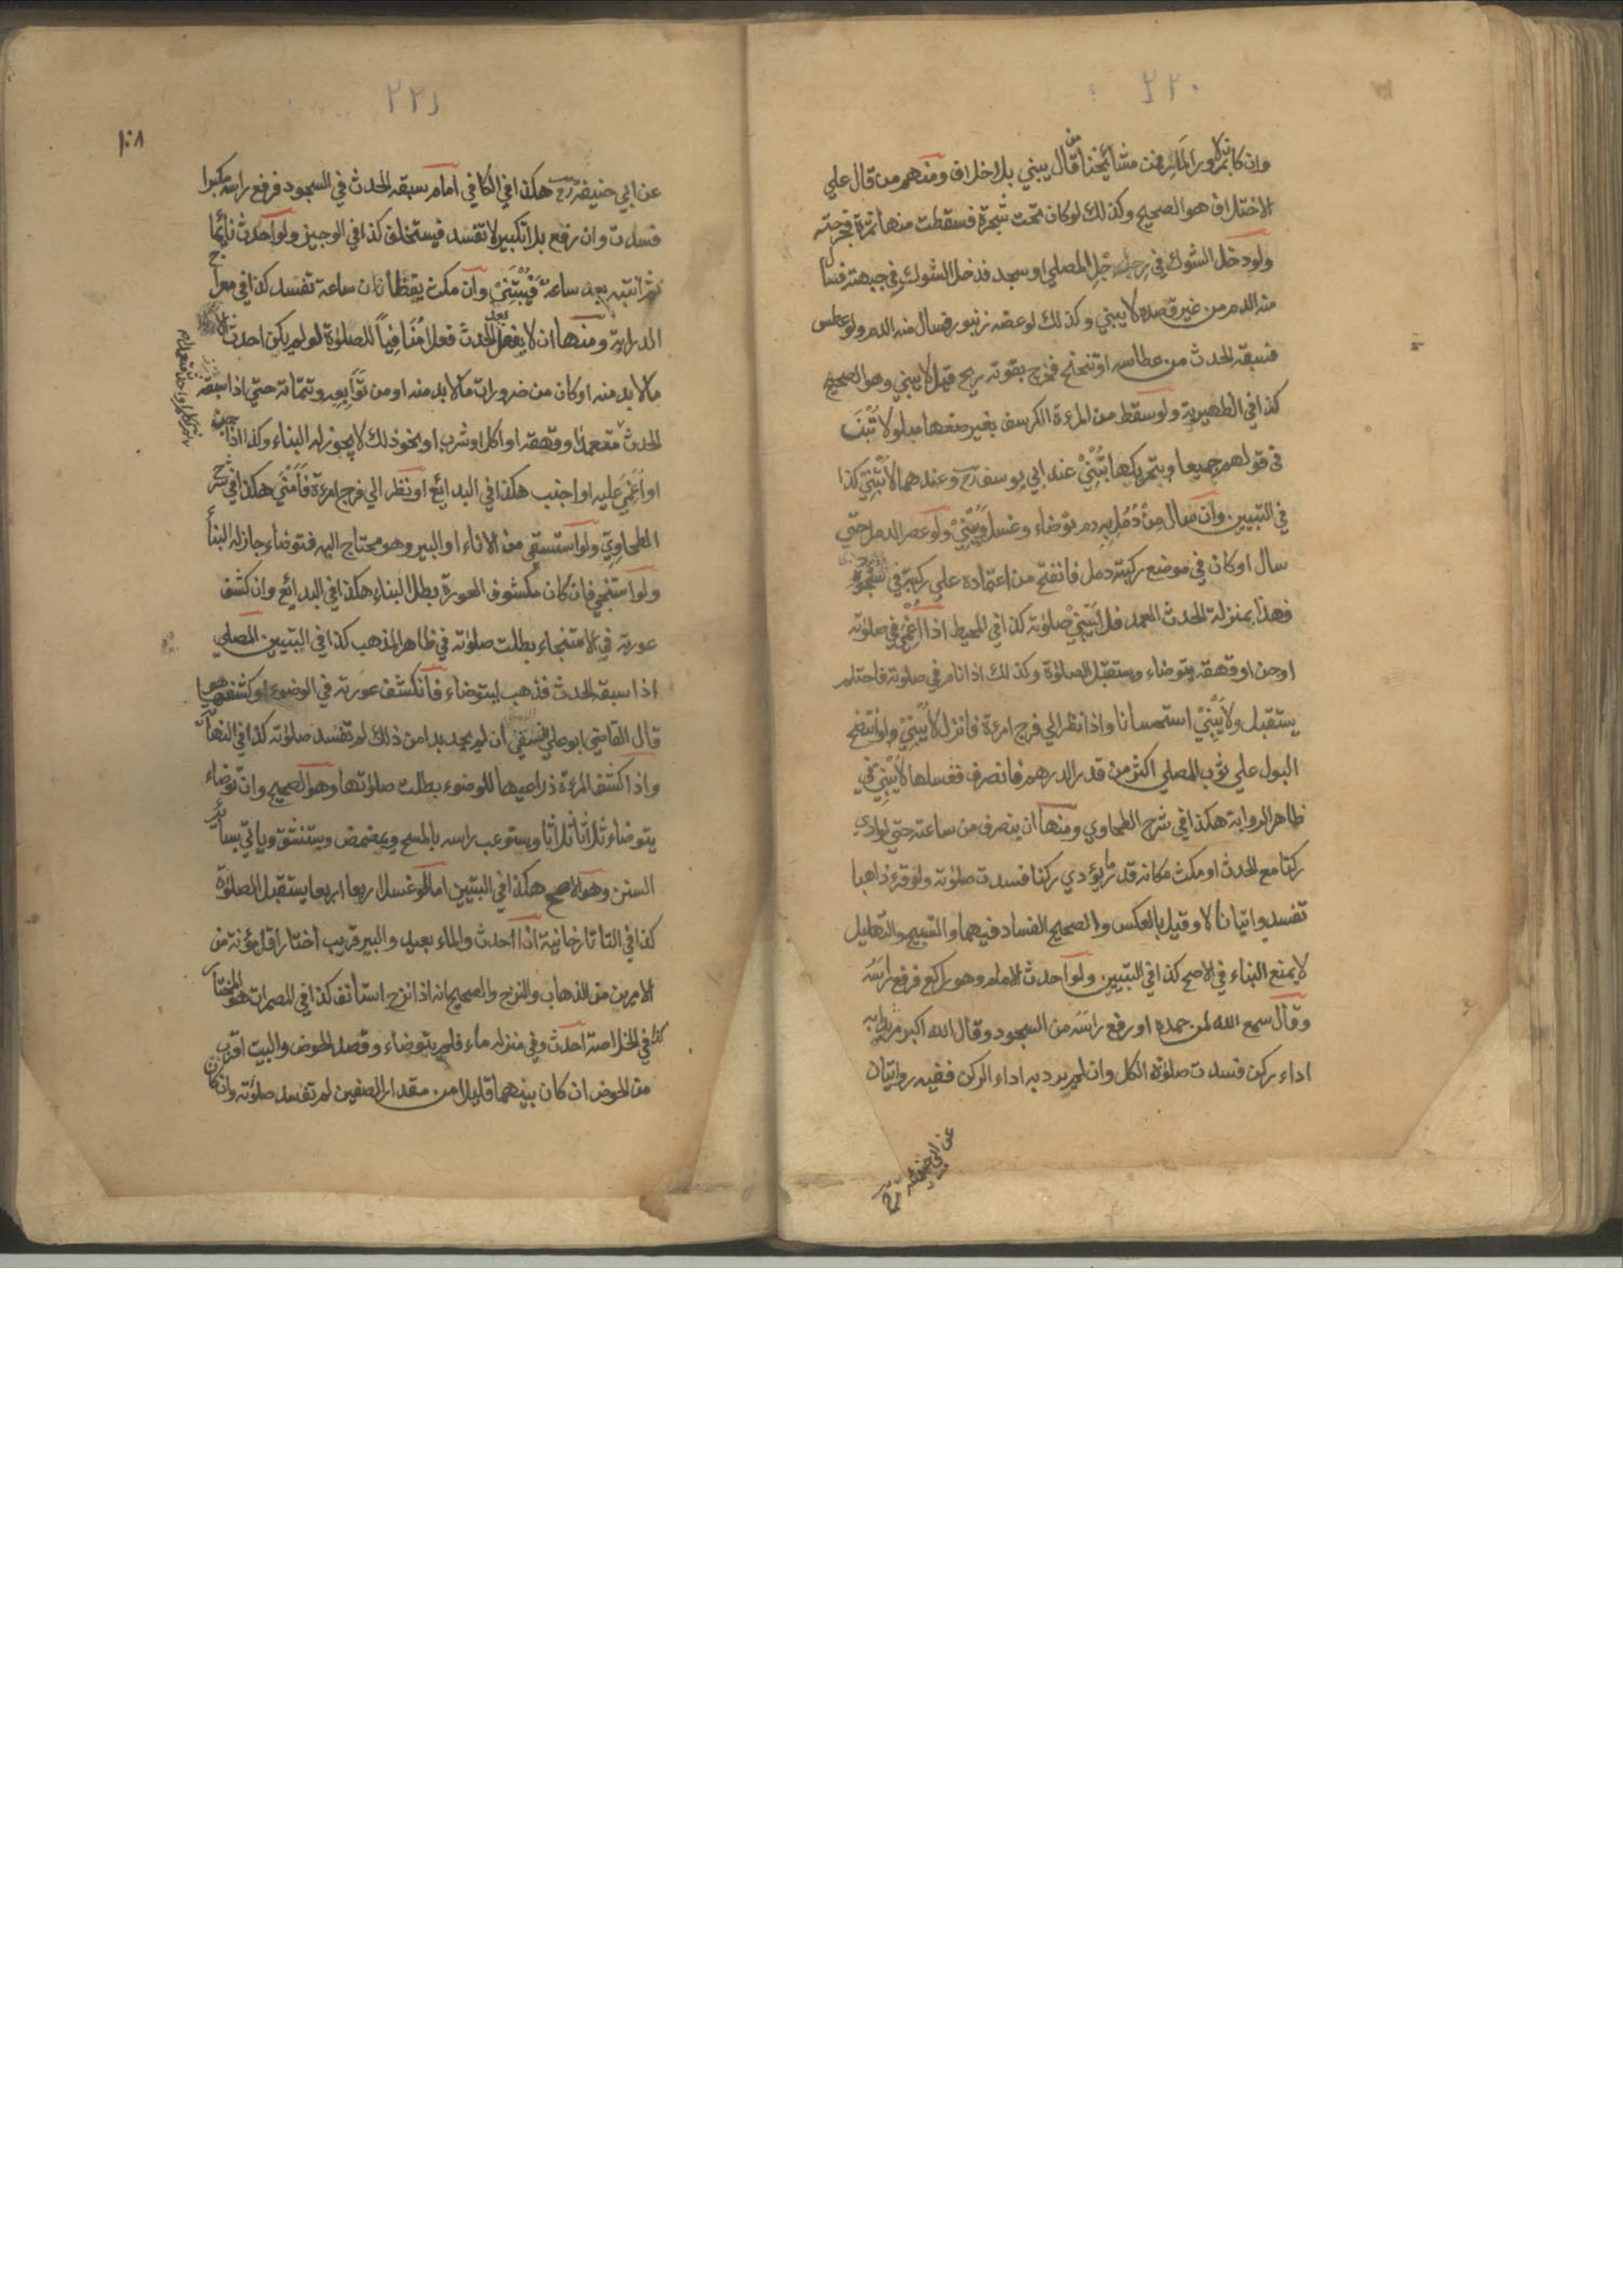 ٢٢٠
وان كان بمرور المار فمن مشائخنا من قال يبني بلا خلاف ومنهم من قال علي
الاختلاف هو الصحيح وكذلك لو كان تحت شجرة فسقطت منها ثمرة فجرحته
ولو دخل الشوك في رجل المصلي او سجد فدخل الشوك في جبهته فسال
منه الدم من غير قصده لا يبني وكذلك لو عضه زنبور فسال منه الدم ولو عطس
فسبقه الحدث من عطاسه او تنحنح فخرج بقوته ريح قيل لا يبني وهو الصحيح
كذا في الظهيرية ولو سقط من المرءة الكرسف بغير صنعها مبلولا تبن
في قولهم جميعا وبتحريكها تبني عند ابي يوسف رح وعندهما لا تبني كذا
في التبيين وان سال من دمل به دم توضاء وغسل ويبني ولو عصر الدمل حتي
سال او كان في موضع ركبته دمل فانفتح من اعتماده علي ركبته في سجوده
فهذا بمنزلة الحدث العمد فلا يبني صلوته كذا في المحيط اذا اغمي في صلوته
او جن او قهقه يتوضاء ويستقبل الصلوة وكذلك اذا نام في صلوته فاحتلم
يستقبل ولا يبني استحسانا واذا نظر الي فرج امرءة فانزل لا يبني ولو انتضح
البول علي ثوب المصلي اكثر من قدر الدرهم فانصرف فغسلها لا يبني في
ظاهر الرواية هكذا في شرح الطحاوي ومنها ان ينصرف من ساعته حتي لو ادي
ركنا مع الحدث او مكث مكانه قدر ما يؤدي ركنا فسدت صلوته ولو قرء ذاهبا
تفسد واتيانا لا وقيل بالعكس والصحيح الفساد فيهما والتسبيح والتهليل
لا يمنع البناء في الاصح كذا في التبيين ولو احدث الامام وهو راكع فرفع راسه
وقال سمع الله لمن حمده او رفع راسه من السجود وقال الله اكبر مريدا به
اداء ركن فسدت صلوة الكل وان لم يرد به اداء الركن ففيه روايتان
عن ابي حنيفة رح
٢٢١
١٠٨
عن ابي حنيفة رح هكذا في الكافي امام سبقه الحدث في السجود فرفع راسه مكبرا
فسدت وان رفع بلا تكبير لا تفسد فيستخلف كذا في الوجيز ولو احدث نائما
ثم انتبه بعد ساعة فيبني وان مكث يقظان ساعة تفسد كذا في معراج
الدراية ومنها ان لا يفعل بعد الحدث فعلا منافيا للصلوة لو لم يكن احدث الا
مالا بد منه او كان من ضرورات مالا بد منه او من توابعه وتتماته حتي اذا سبقه
الحدث متعمدا او قهقه او اكل او شرب او نحو ذلك لا يجوز له البناء وكذا اذا جن
او اغمي عليه او اجنب هكذا في البدائع او نظر الي فرج امرءة فامني هكذا في شرح
الطحاوي ولو استسقي من الاناء او البير وهو محتاج اليه فتوضاء جاز له البنا
ولو استنجي فان كان مكشوف العورة بطل البناء هكذا في البدائع وان كشف
عورته في الاستنجاء بطلت صلوته في ظاهر المذهب كذا في التبيين المصلي
اذا سبقه الحدث فذهب ليتوضاء فانكشف عورته في الوضوء او كشفه هو
قال القاضي ابو علي النسفي ان لم يجد بدا من ذلك لم تفسد صلوته كذا في النها
واذا كشف المرءة ذراعيها للوضوء بطلت صلوتها وهو الصحيح وان توضاء
يتوضاء ثلاثا ثلاثا ويستوعب راسه بالمسح ويمضمض ويستنشق وياتي بسائر
السنن وهو الاصح هكذا في التبيين اما لو غسل اربعا اربعا يستقبل الصلوة
كذا في التاتارخانية اذا احدث والماء بعيد والبير قريب اختار اقل مؤنة من
الامرين من الذهاب والنزح والصحيح انه اذا نزح استانف كذا في المضمرات هو المختار
كذا في الخلاصة احدث وفي منزله ماء فلم يتوضاء وقصد الحوض والبيت اقرب
من الحوض ان كان بينهما قليلا من مقدار الصفين لم تفسد صلوته وان كان